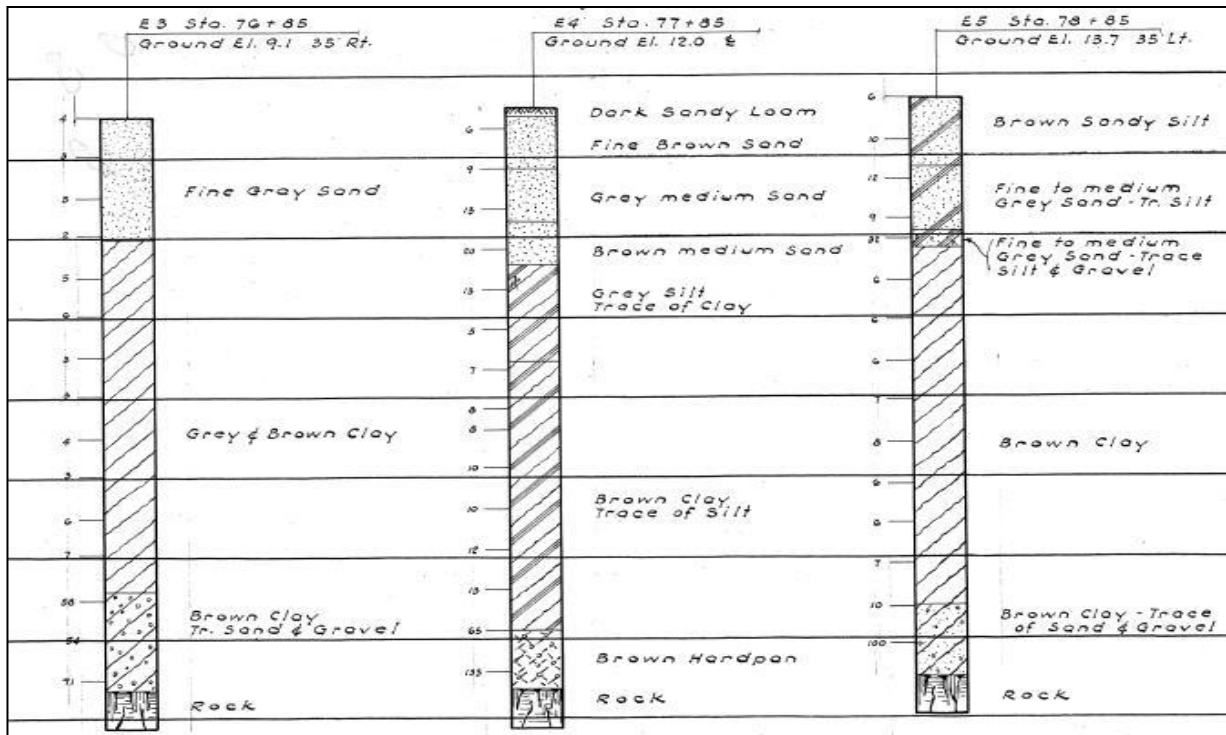 E3 Sta. 76+85
Ground El. 9.1 35' Rt.
4
5
2
5
6
3
4
3
6
7
58
54
71
Fine Gray Sand
Grey & Brown Clay
Brown Clay
Tr. Sand & Gravel
Rock
E4 Sta. 77+85
Ground El. 12.0 ℄
6
9
13
20
13
5
7
8
8
10
10
12
13
65
135
Dark Sandy Loam
Fine Brown Sand
Grey medium Sand
Brown medium Sand
Grey Silt
Trace of Clay
Brown Clay
Trace of Silt
Brown Hardpan
Rock
E5 Sta. 78+85
Ground El. 13.7 35' Lt.
6
10
12
9
32
6
6
6
7
8
6
6
7
10
100
Brown Sandy Silt
Fine to medium
Grey Sand - Tr. Silt
Fine to medium
Grey Sand - Trace
Silt & Gravel
Brown Clay
Brown Clay - Trace
of Sand & Gravel
Rock